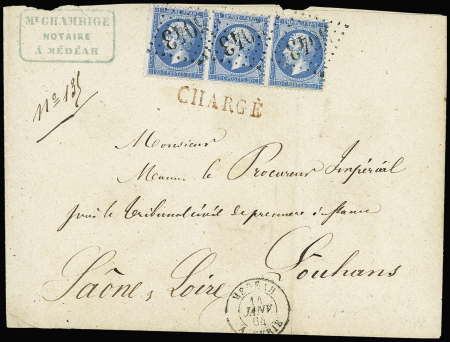 Mᵉ CHAMBIGE
NOTAIRE
A MÉDÉAH
EMPIRE FRANÇAIS
CHARGÉ
Nº 135
Monsieur
le Procureur Impérial
près le Tribunal civil de première instance
Louhans
Saône & Loire
MÉDÉAH
14
JANV
64
ALGÉRIE